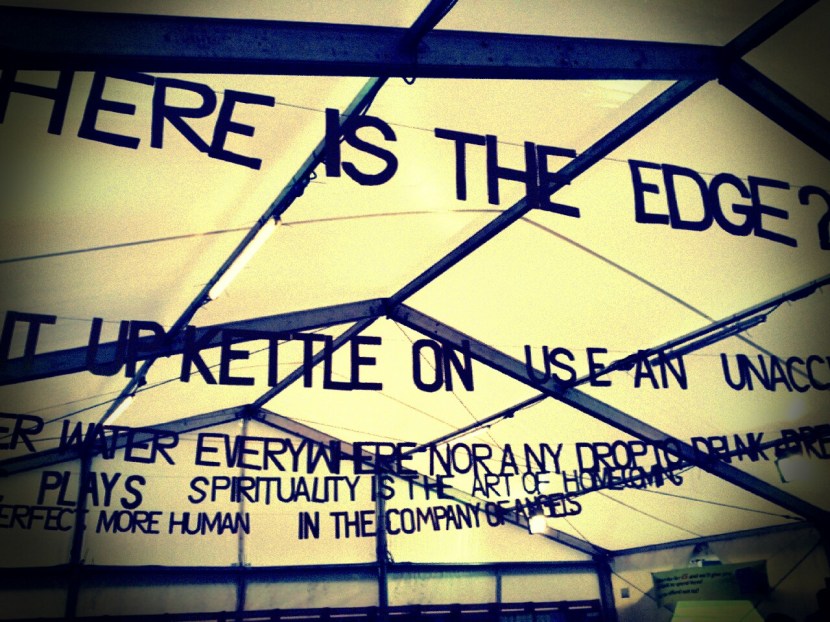 HERE IS THE EDGE?
IT UP KETTLE ON USE AN UNACC
ER WATER EVERYWHERE NOR ANY DROP TO DRINK BRE
PLAYS SPIRITUALITY IS THE ART OF HOMECOMING
ERFECT MORE HUMAN IN THE COMPANY OF ANGELS